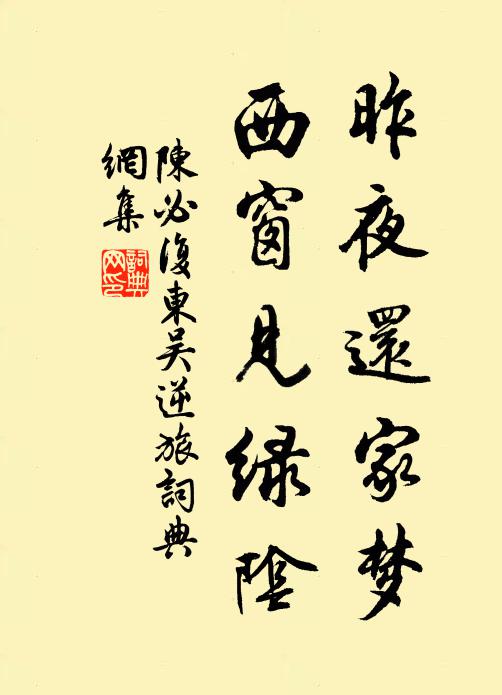 昨夜還家梦
西窗見绿陰
陳必復東吴逆旅詞典
網集
詞典
网印